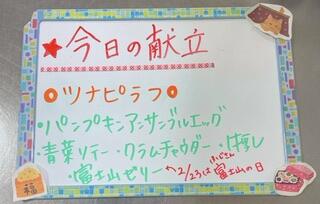 ★今日の献立
○ツナピラフ○
・パンプキンアンサンブルエッグ
・青菜ソテー・クラムチャウダー・牛乳
・富士山ゼリー←2/23は富士山の日
ふじさん
福